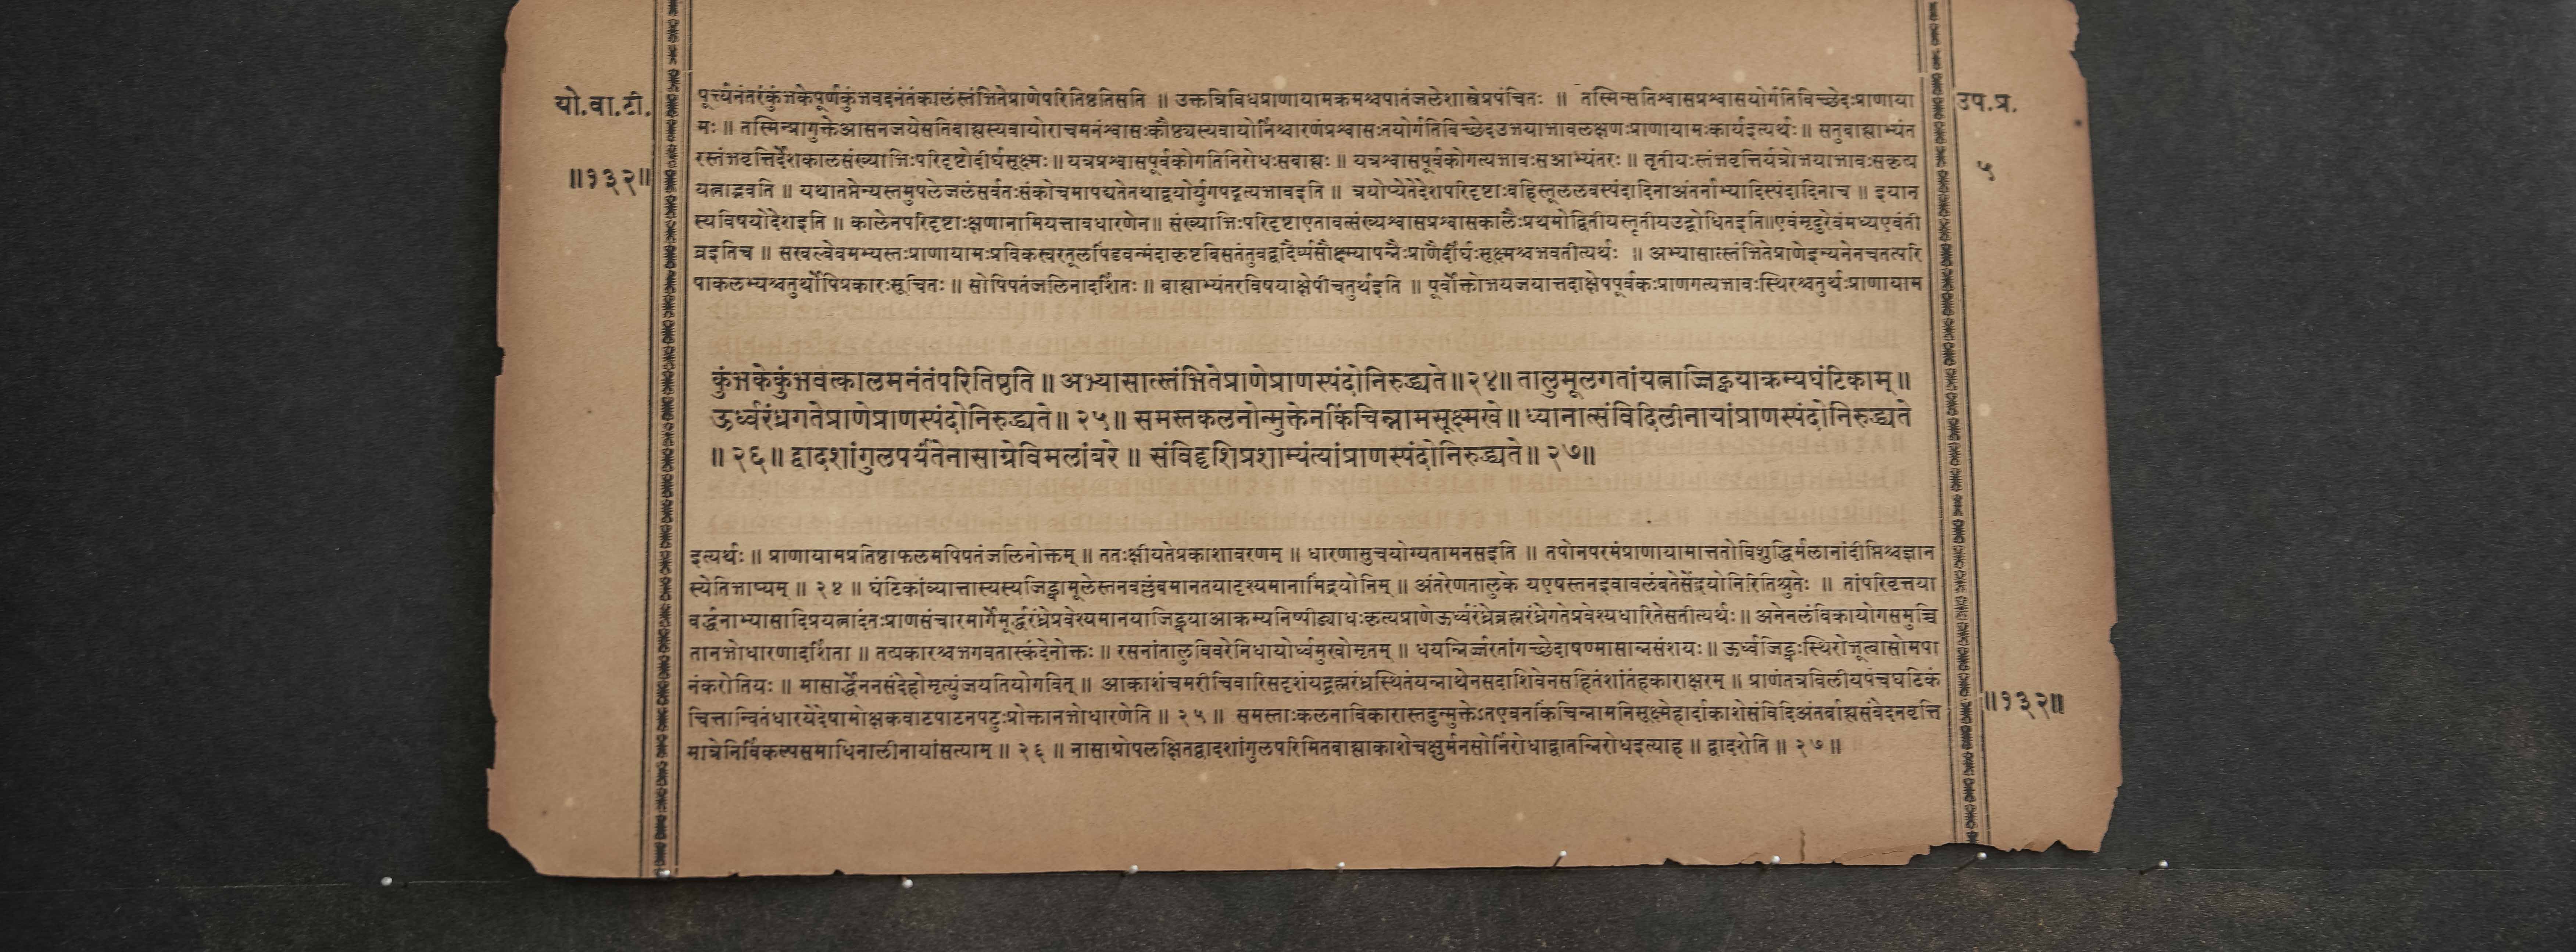 यो.वा.टी.
॥१३२॥
पूर्त्त्यनंतरंकुंभकेपूर्णकुंभवदनंतंकालंस्तंभितेप्राणेपरितिष्ठतिसति ॥ उक्तत्रिविधप्राणायामक्रमश्चपातंजलेशास्त्रेप्रपंचितः ॥ तस्मिन्सतिश्वासप्रश्वासयोर्गतिविच्छेदःप्राणाया
मः ॥ तस्मिन्प्रागुक्तेआसनजयेसतिबाह्यस्यवायोराचमनंश्वासःकौष्ठ्यस्यवायोर्निश्चारणंप्रश्वासःतयोर्गतिविच्छेदउभयाभावलक्षणःप्राणायामःकार्यइत्यर्थः ॥ सतुबाह्याभ्यंत
रस्तंभवृत्तिर्देशकालसंख्याभिःपरिदृष्टोदीर्घसूक्ष्मः ॥ यत्रप्रश्वासपूर्वकोगतिनिरोधःसबाह्यः ॥ यत्रश्वासपूर्वकोगत्यभावःसआभ्यंतरः ॥ तृतीयःस्तंभवृत्तिर्यत्रोभयाभावःसकृत्प्र
यत्नाद्भवति ॥ यथातप्तेन्यस्तमुपलेजलंसर्वतःसंकोचमापद्यतेतथाद्वयोर्युगपद्गत्यभावइति ॥ त्रयोप्येतेदेशपरिदृष्टाःबहिस्तूललवस्पंदादिनाअंतर्नाभ्यादिस्पंदादिनाच ॥ इयान
स्यविषयोदेशइति ॥ कालेनपरिदृष्टाःक्षणानामियत्तावधारणेन॥ संख्याभिःपरिदृष्टाएतावत्संख्यश्वासप्रश्वासकालैःप्रथमोद्वितीयस्तृतीयउद्बोधितइति॥एवंमृदुरेवंमध्यएवंती
व्रइतिच ॥ सखल्वेवमभ्यस्तःप्राणायामःप्रविकस्वरतूलपिंडवन्मंदाकृष्टबिसतंतुवद्वादैर्घ्यसौक्ष्म्यापन्नैःप्राणैर्दीर्घःसूक्ष्मश्चभवतीत्यर्थः ॥ अभ्यासात्स्तंभितेप्राणेइत्यनेनचतत्परि
पाकलभ्यश्चतुर्थोपिप्रकारःसूचितः ॥ सोपिपतंजलिनादर्शितः ॥ बाह्याभ्यंतरविषयाक्षेपीचतुर्थइति ॥ पूर्वोक्तोभयजयात्तदाक्षेपपूर्वकःप्राणगत्यभावःस्थिरश्चतुर्थःप्राणायाम
उप.प्र.
५
कुंभकेकुंभवत्कालमनंतंपरितिष्ठति ॥ अभ्यासात्स्तंभितेप्राणेप्राणस्पंदोनिरुद्ध्यते॥२४॥ तालुमूलगतांयत्नाज्जिह्वयाक्रम्यघंटिकाम् ॥
ऊर्ध्वरंध्रगतेप्राणेप्राणस्पंदोनिरुद्ध्यते॥ २५॥ समस्तकलनोन्मुक्तेनकिंचिन्नामसूक्ष्मखे॥ ध्यानात्संविदिलीनायांप्राणस्पंदोनिरुद्ध्यते
॥ २६॥ द्वादशांगुलपर्यंतेनासाग्रेविमलांबरे ॥ संविद्दृशिप्रशाम्यंत्यांप्राणस्पंदोनिरुद्ध्यते॥ २७॥
इत्यर्थः ॥ प्राणायामप्रतिष्ठाफलमपिपतंजलिनोक्तम् ॥ ततःक्षीयतेप्रकाशावरणम् ॥ धारणासुचयोग्यतामनसइति ॥ तपोनपरमंप्राणायामात्ततोविशुद्धिर्मलानांदीप्तिश्चज्ञान
स्येतिभाष्यम् ॥ २४ ॥ घंटिकांव्यात्तास्यस्यजिह्वामूलेस्तनवल्लंबमानतयादृश्यमानामिंद्रयोनिम् ॥ अंतरेणतालुके यएषस्तनइवावलंबतेसेंद्रयोनिरितिश्रुतेः ॥ तांपरिवृत्तया
वर्द्धनाभ्यासादिप्रयत्नादंतःप्राणसंचारमार्गेमूर्द्धरंध्रेप्रवेश्यमानयाजिह्वयाआक्रम्यनिष्पीड्याधःकृत्यप्राणेऊर्ध्वरंध्रेब्रह्मरंध्रेगतेप्रवेश्यधारितेसतीत्यर्थः ॥ अनेनलंबिकायोगसमुच्चि
तानभोधारणादर्शिता ॥ तत्प्रकारश्चभगवतास्कंदेनोक्तः ॥ रसनांतालुविवरेनिधायोर्ध्वमुखोमृतम् ॥ धयन्निर्ज्जरतांगच्छेदाषण्मासान्नसंशयः ॥ ऊर्ध्वजिह्वःस्थिरोभूत्वासोमपा
नंकरोतियः ॥ मासार्द्धेननसंदेहोमृत्युंजयतियोगवित् ॥ आकाशंचमरीचिवारिसदृशंयद्ब्रह्मरंध्रस्थितंयन्नाथेनसदाशिवेनसहितंशांतंहकाराक्षरम् ॥ प्राणंतत्रविलीयपंचघटिकं
चित्तान्वितंधारयेदेषामोक्षकवाटपाटनपटुःप्रोक्तानभोधारणेति ॥ २५ ॥ समस्ताःकलनाविकारास्तदुन्मुक्तेऽतएवनकिंचिन्नामनिसूक्ष्मेहार्दाकाशेसंविदिअंतर्बाह्यसंवेदनवृत्ति
मात्रेनिर्विकल्पसमाधिनालीनायांसत्याम् ॥ २६ ॥ नासाग्रोपलक्षितद्वादशांगुलपरिमितबाह्याकाशेचक्षुर्मनसोर्निरोधाद्वातन्निरोधइत्याह ॥ द्वादशेति ॥ २७ ॥
॥१३२॥